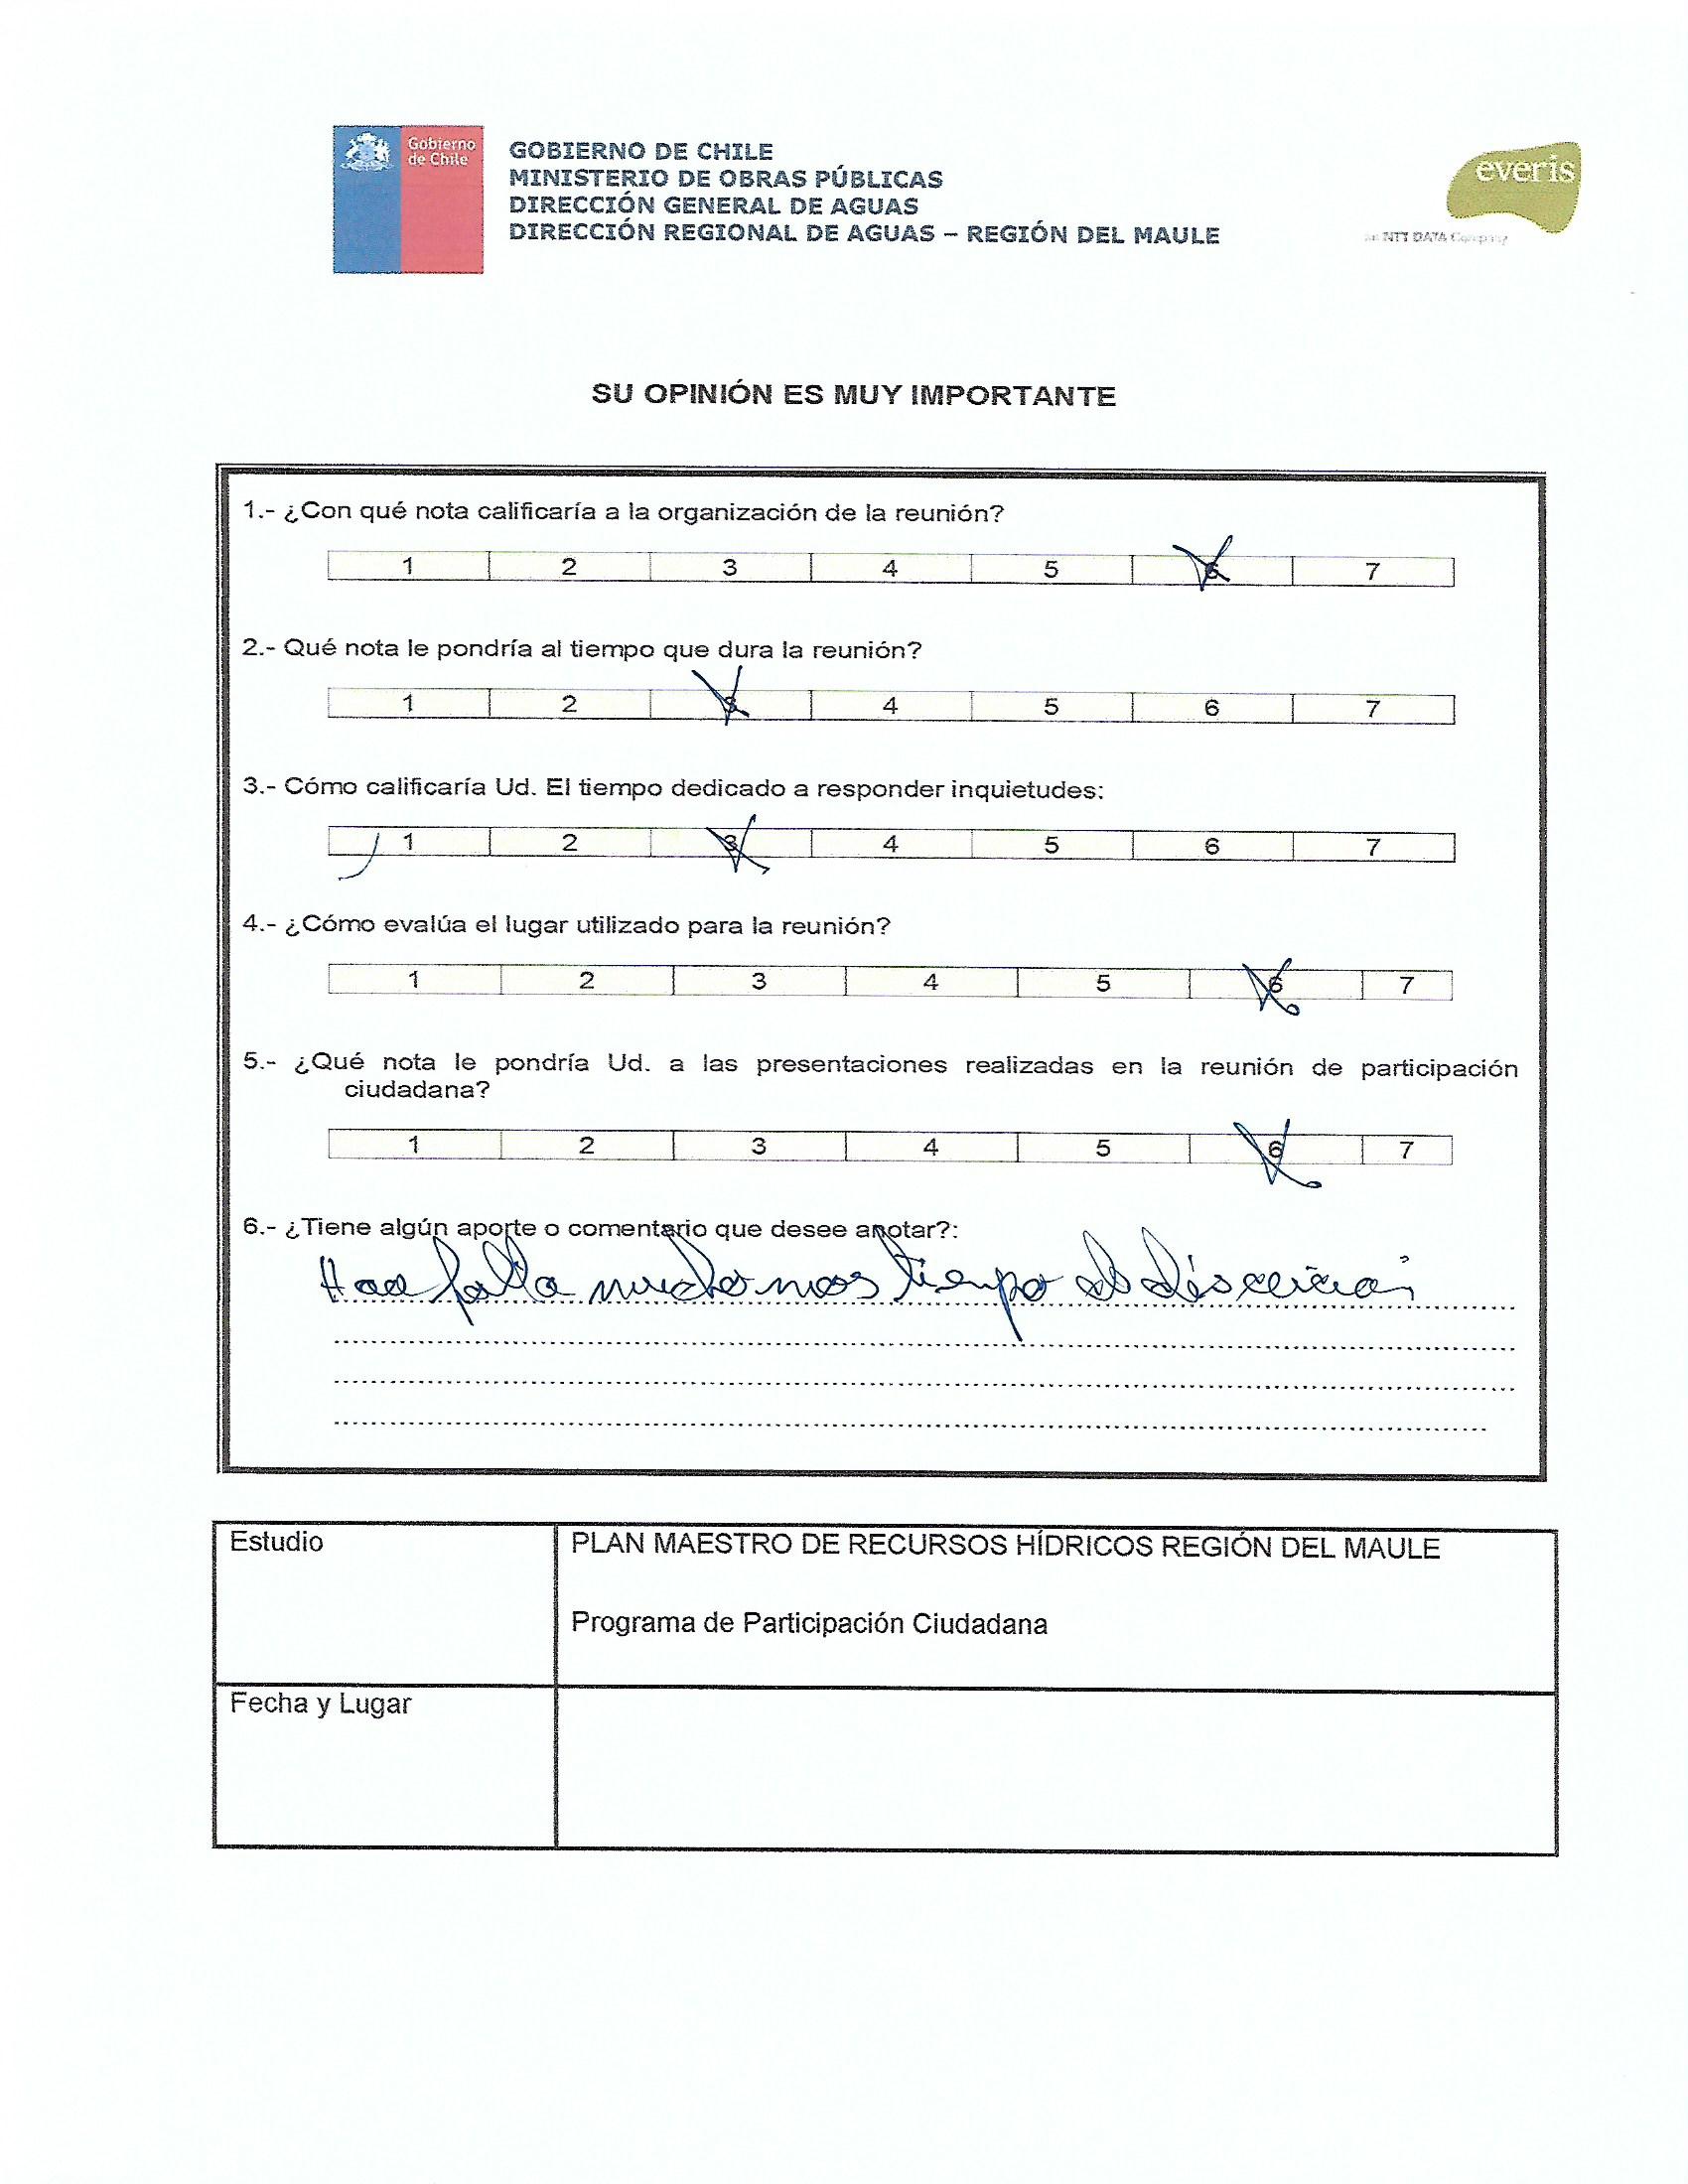 Gobierno
de Chile
GOBIERNO DE CHILE
MINISTERIO DE OBRAS PÚBLICAS
DIRECCIÓN GENERAL DE AGUAS
DIRECCIÓN REGIONAL DE AGUAS – REGIÓN DEL MAULE
everis
an NTT DATA Company
SU OPINIÓN ES MUY IMPORTANTE
1.- ¿Con qué nota calificaría a la organización de la reunión?
1 2 3 4 5 6 7
2.- Qué nota le pondría al tiempo que dura la reunión?
1 2 3 4 5 6 7
3.- Cómo calificaría Ud. El tiempo dedicado a responder inquietudes:
1 2 3 4 5 6 7
4.- ¿Cómo evalúa el lugar utilizado para la reunión?
1 2 3 4 5 6 7
5.- ¿Qué nota le pondría Ud. a las presentaciones realizadas en la reunión de participación
ciudadana?
1 2 3 4 5 6 7
6.- ¿Tiene algún aporte o comentario que desee anotar?:
falta mucho mas tiempo
Estudio PLAN MAESTRO DE RECURSOS HÍDRICOS REGIÓN DEL MAULE
Programa de Participación Ciudadana
Fecha y Lugar